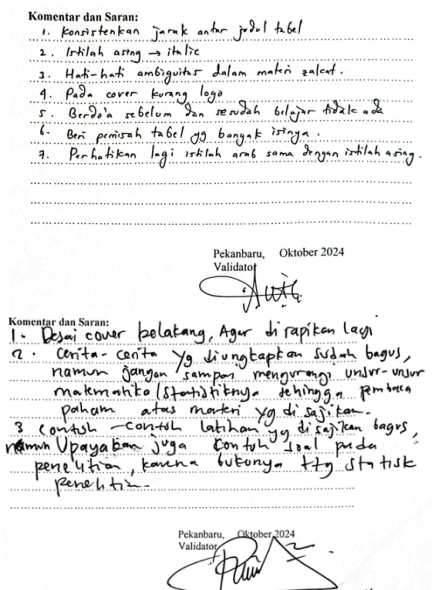 Komentar dan Saran:
1. Konsistenkan jarak antar judul tabel
2. Istilah asing → italic
3. Hati-hati ambiguitas dalam materi zakat.
4. Pada cover kurang logo
5. Berdo'a sebelum dan sesudah belajar tidak ada
6. Beri pemisah tabel yg banyak isinya.
7. Perhatikan lagi istilah arab sama dengan istilah asing.
Pekanbaru, Oktober 2024
Validator
Komentar dan Saran:
1. Desai cover belakang, Agar dirapikan lagi
2. Cerita-cerita yg diungkapkan sudah bagus,
namun jangan sampai mengurangi unsur-unsur
matematika/statistiknya sehingga pembaca
paham atas materi yg disajikan.
3 contoh-contoh latihan yg disajikan bagus,
namun Upayakan juga contoh soal pada
penelitian, karena bukunya ttg statistk
penelitin.
Pekanbaru, Oktober 2024
Validator